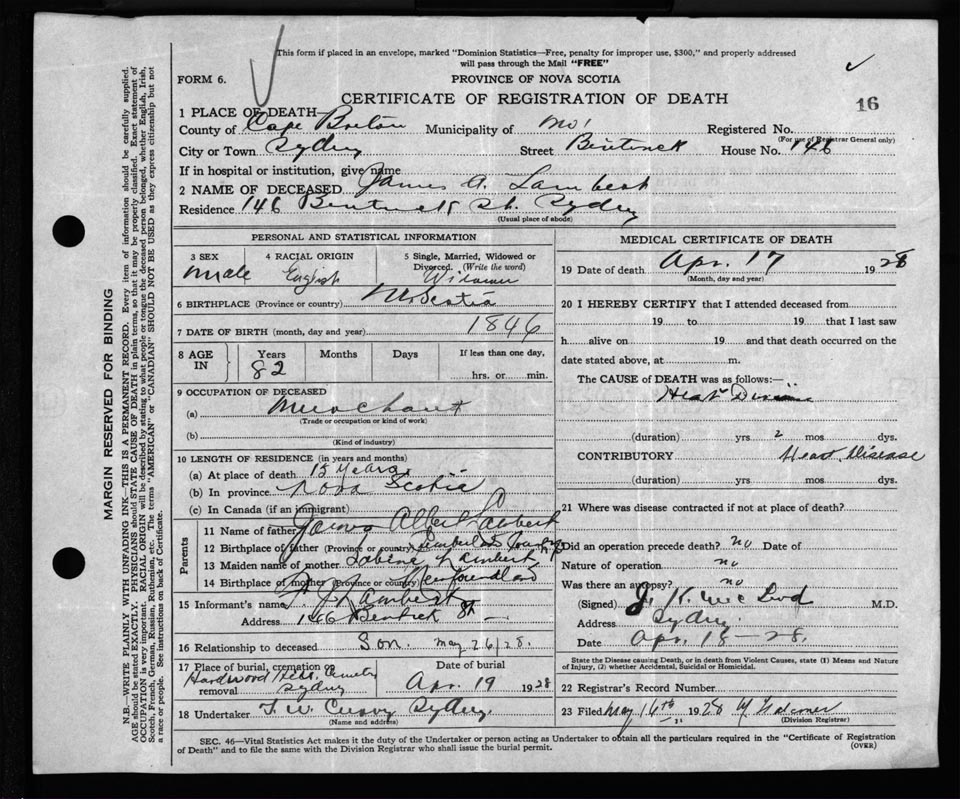 This form if placed in an envelope, marked "Dominion Statistics—Free, penalty for improper use, $300," and properly addressed
will pass through the Mail "FREE"
FORM 6.
PROVINCE OF NOVA SCOTIA
CERTIFICATE OF REGISTRATION OF DEATH
16
1 PLACE OF DEATH—
County of Cape Breton Municipality of Registered No.
(For use of Registrar General only)
City or Town Sydney Street Bentinck House No. 146
If in hospital or institution, give name
2 NAME OF DECEASED James A. Lambert
Residence 146 Bentinck St. Sydney
(Usual place of abode)
PERSONAL AND STATISTICAL INFORMATION
3 SEX 4 RACIAL ORIGIN 5 Single, Married, Widowed or
Divorced. (Write the word)
male English
6 BIRTHPLACE (Province or country) N. Scotia
7 DATE OF BIRTH (month, day and year) 1846
8 AGE IN Years Months Days If less than one day,
82 hrs. or min.
9 OCCUPATION OF DECEASED
(a) Merchant
(Trade or occupation or kind of work)
(b)
(Kind of industry)
10 LENGTH OF RESIDENCE (in years and months)
(a) At place of death 15 years
(b) In province Nova Scotia
(c) In Canada (if an immigrant)
Parents
11 Name of father James Albert Lambert
12 Birthplace of father (Province or country)
13 Maiden name of mother Lambert
14 Birthplace of mother (Province or country) Newfoundland
15 Informant's name Lambert
Address 146 St.
16 Relationship to deceased Son. May 26/28.
17 Place of burial, cremation or Date of burial
removal Hardwood Hill Cemetery
Sydney Apr. 19 1928
18 Undertaker Sydney.
(Name and address)
MEDICAL CERTIFICATE OF DEATH
19 Date of death Apr. 17 1928
(Month, day and year)
20 I HEREBY CERTIFY that I attended deceased from
19 to 19 that I last saw
h alive on 19 and that death occurred on the
date stated above, at m.
The CAUSE OF DEATH was as follows:—
Heart Disease
(duration) yrs 2 mos dys.
CONTRIBUTORY Heart Disease
(duration) yrs. mos dys.
21 Where was disease contracted if not at place of death?
Did an operation precede death? no Date of
Nature of operation no
Was there an autopsy? no
(Signed) M.D.
Address Sydney
Date Apr. 18—28.
State the Disease causing Death, or in death from Violent Causes, state (1) Means and Nature
of Injury, (2) whether Accidental, Suicidal or Homicidal.
22 Registrar's Record Number
23 Filed May 16th 1928
(Division Registrar)
SEC. 46—Vital Statistics Act makes it the duty of the Undertaker or person acting as Undertaker to obtain all the particulars required in the "Certificate of Registration
of Death" and to file the same with the Division Registrar who shall issue the burial permit.
(OVER)
MARGIN RESERVED FOR BINDING
N.B.—WRITE PLAINLY WITH UNFADING INK—THIS IS A PERMANENT RECORD. Every item of information should be carefully supplied.
AGE should be stated EXACTLY. PHYSICIANS should STATE CAUSE OF DEATH in plain terms, so that it may be properly classified. Exact statement of
OCCUPATION is very important. RACIAL ORIGIN will be described by stating to what people or tongue the deceased person belonged, whether English, Irish,
Scotch, French, German, Russian, Ruthenian, etc. The terms "AMERICAN" or "CANADIAN" SHOULD NOT BE USED as they express citizenship but not
a race or people. See instructions on back of Certificate.